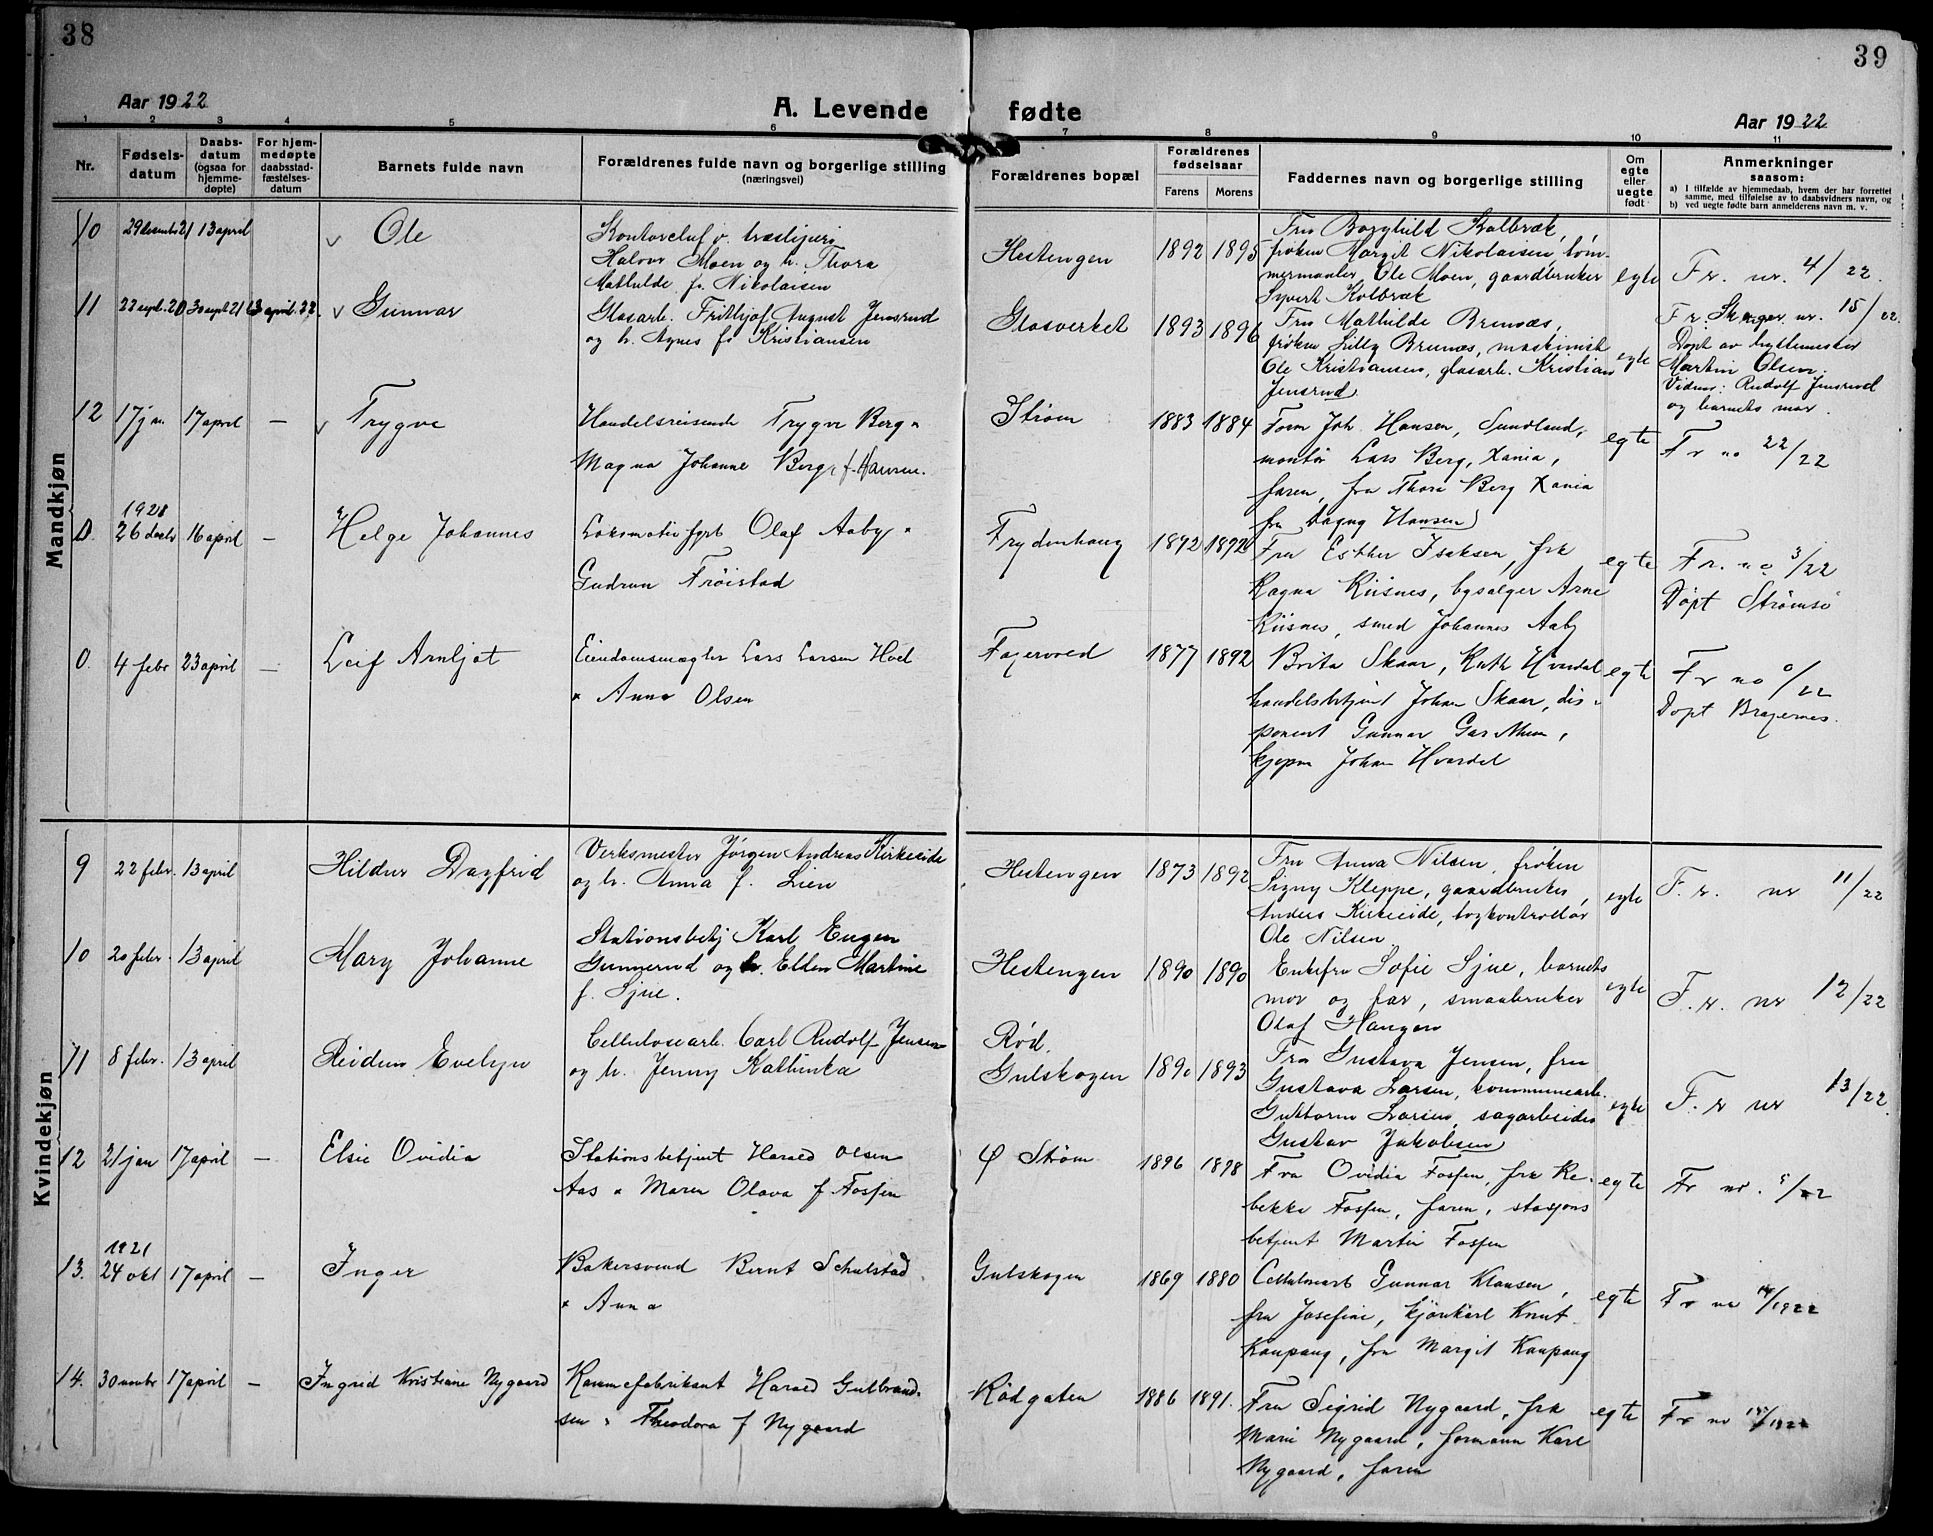 38
39
Aar 1922
A. Levende fødte
Aar 1922
1 2 3 4 5 6 7 8 9 10 11
Nr.
Fødsels-
datum
Daabs-
datum
(ogsaa for
hjemme-
døpte)
For hjem-
medøpte
daabsstad-
fæstelses-
datum
Barnets fulde navn
Forældrenes fulde navn og borgerlige stilling
(næringsvei)
Forældrenes bopæl
Forældrenes
fødselsaar
Farens Morens
Faddernes navn og borgerlige stilling
Om
egte
eller
uegte
født
Anmerkninger
saasom:
a) I tilfælde av hjemmedaab, hvem der har forrettet
samme, med tilføielse av to daabsvidners navn, og
b) ved uegte fødte barn anmelderens navn m. v.
Mandkjøn
10 29 desember 21 13 april
Ole
Halvor Moen og h. Thora
Mathilde f. Nikolaisen
Hestengen
1892 1895
Fru Borghild Kolbræk,
frøken Margit Nikolaisen, tøm-
mermand Ole Moen, gaardbruker
Syvert Kolbræk
egte
Fr. nr. 4/22.
11 22 sept. 20 30 sept 21 13 april 22.
Gunnar
Glasarb. Frithjof August Jensrud
og h. Agnes f. Kristiansen
Glasverket
1893 1896
Fru Mathilde Brenæs,
frøken Lilly Brenæs, maskinist
Ole Kristiansen, glasarb. Kristian
Jensrud
egte
Fr. Skoger nr. 15/22.
Døpt av hyttemester
Martin Olsen.
Vidner: Rudolf Jensrud
og barnets mor.
12 17 jan. 17 april —
Trygve
Handelsreisende Trygve Berg "
Magna Johanne Berg f. Hansen.
Strøm
1883 1884
Form Joh. Hansen, Sundland,
montør Lars Berg, Xania,
faren, fru Thora Berg Xania
fru Dagny Hansen
egte
Fr no 22/22
0. 1921
26 decbr 16 april —
Helge Johannes
Lokmotivfyrb Olaf Aaby "
Gudrun Frøistad
Frydenhaug
1892 1892
Fru Esther Isaksen, frk
Ragna Kiisnes, bysælger Arne
Kiisnes, smed Johannes Aaby
egte
Fr. no 3/22
Døpt Strømsø
0. 4 febr 23 april —
Leif Arnljot
Eiendomsmægler Lars Larsen Hoel
" Anna Olsen
Fagervold
1877 1892
Brita Skaar, Kath Hverdal
handelsbetjent Johan Skaar, dis-
ponent Gunnar
kjøpm Johan Hverdal
egte
Fr no 0/22
Døpt Bragernes.
Kvindekjøn
9 22 febr. 13 april
Hildur Dagfrid
Verksmester Jørgen Andreas Kirkeeide
og h. Anna f. Lien
Hestengen
1873 1892
Fru Anna Nilsen, frøken
Signy Kleppe, gaardbruker,
Anders Kirkeeide, togkontrollør
Ole Nilsen
egte
F.r. nr 11/22
10 20 febr. 13 april
Mary Johanne
Stationsbetj Karl Eugen
Gunnerud og h. Ellen Martine
f. Sjue.
Hestengen
1890 1890
Enkefru Sofie Sjue, barnets
mor og far, smaabruker
Olaf Haugen
egte
F.r. nr 12/22
11 8 febr. 13 april
Reidun Evelyn
Cellulosearb. Carl Rudolf Jensen
og h. Jenny Kathinka
Rød,
Gulskogen
1890 1893
Fru Gustava Jensen, fru
Gustava Larsen, kommunearb.
Guttorm Larsen, sagarbeider
Gustav Jakobsen
egte
F.r nr 13/22.
12 21 jan 17 april —
Elsie Ovidia
Stationsbetjent Harald Olsen
Aas " Maren Olava f. Fosfen
Strøm
1896 1898
Fru Ovidia Fosfen, frk Re-
bekka Fosfen, faren, stasjons
betjent Martin Fosfen
egte
Fr nr. 9/22
13. 1921
24 okt 17 april —
Inger
Bakersvend Bernt Schulstad
" Anna
Gulskogen
1869 1880
Cellulosearb Gunnar Klausen,
fru Josefine, kjørekarl Knut
Kaupang, fru Margit Kaupang
egte
Fr no 14/1922
14. 30 novbr 17 april —
Ingrid Kristiane Nygaard
Rammefabrikant Harald Gulbrand-
sen " Theodora f Nygaard
Rødgaten
1886 1891.
Fru Sigrid Nygaard, frk
Marie Nygaard, formann Karl
Nygaard, faren
egte
Fr no 15/1922